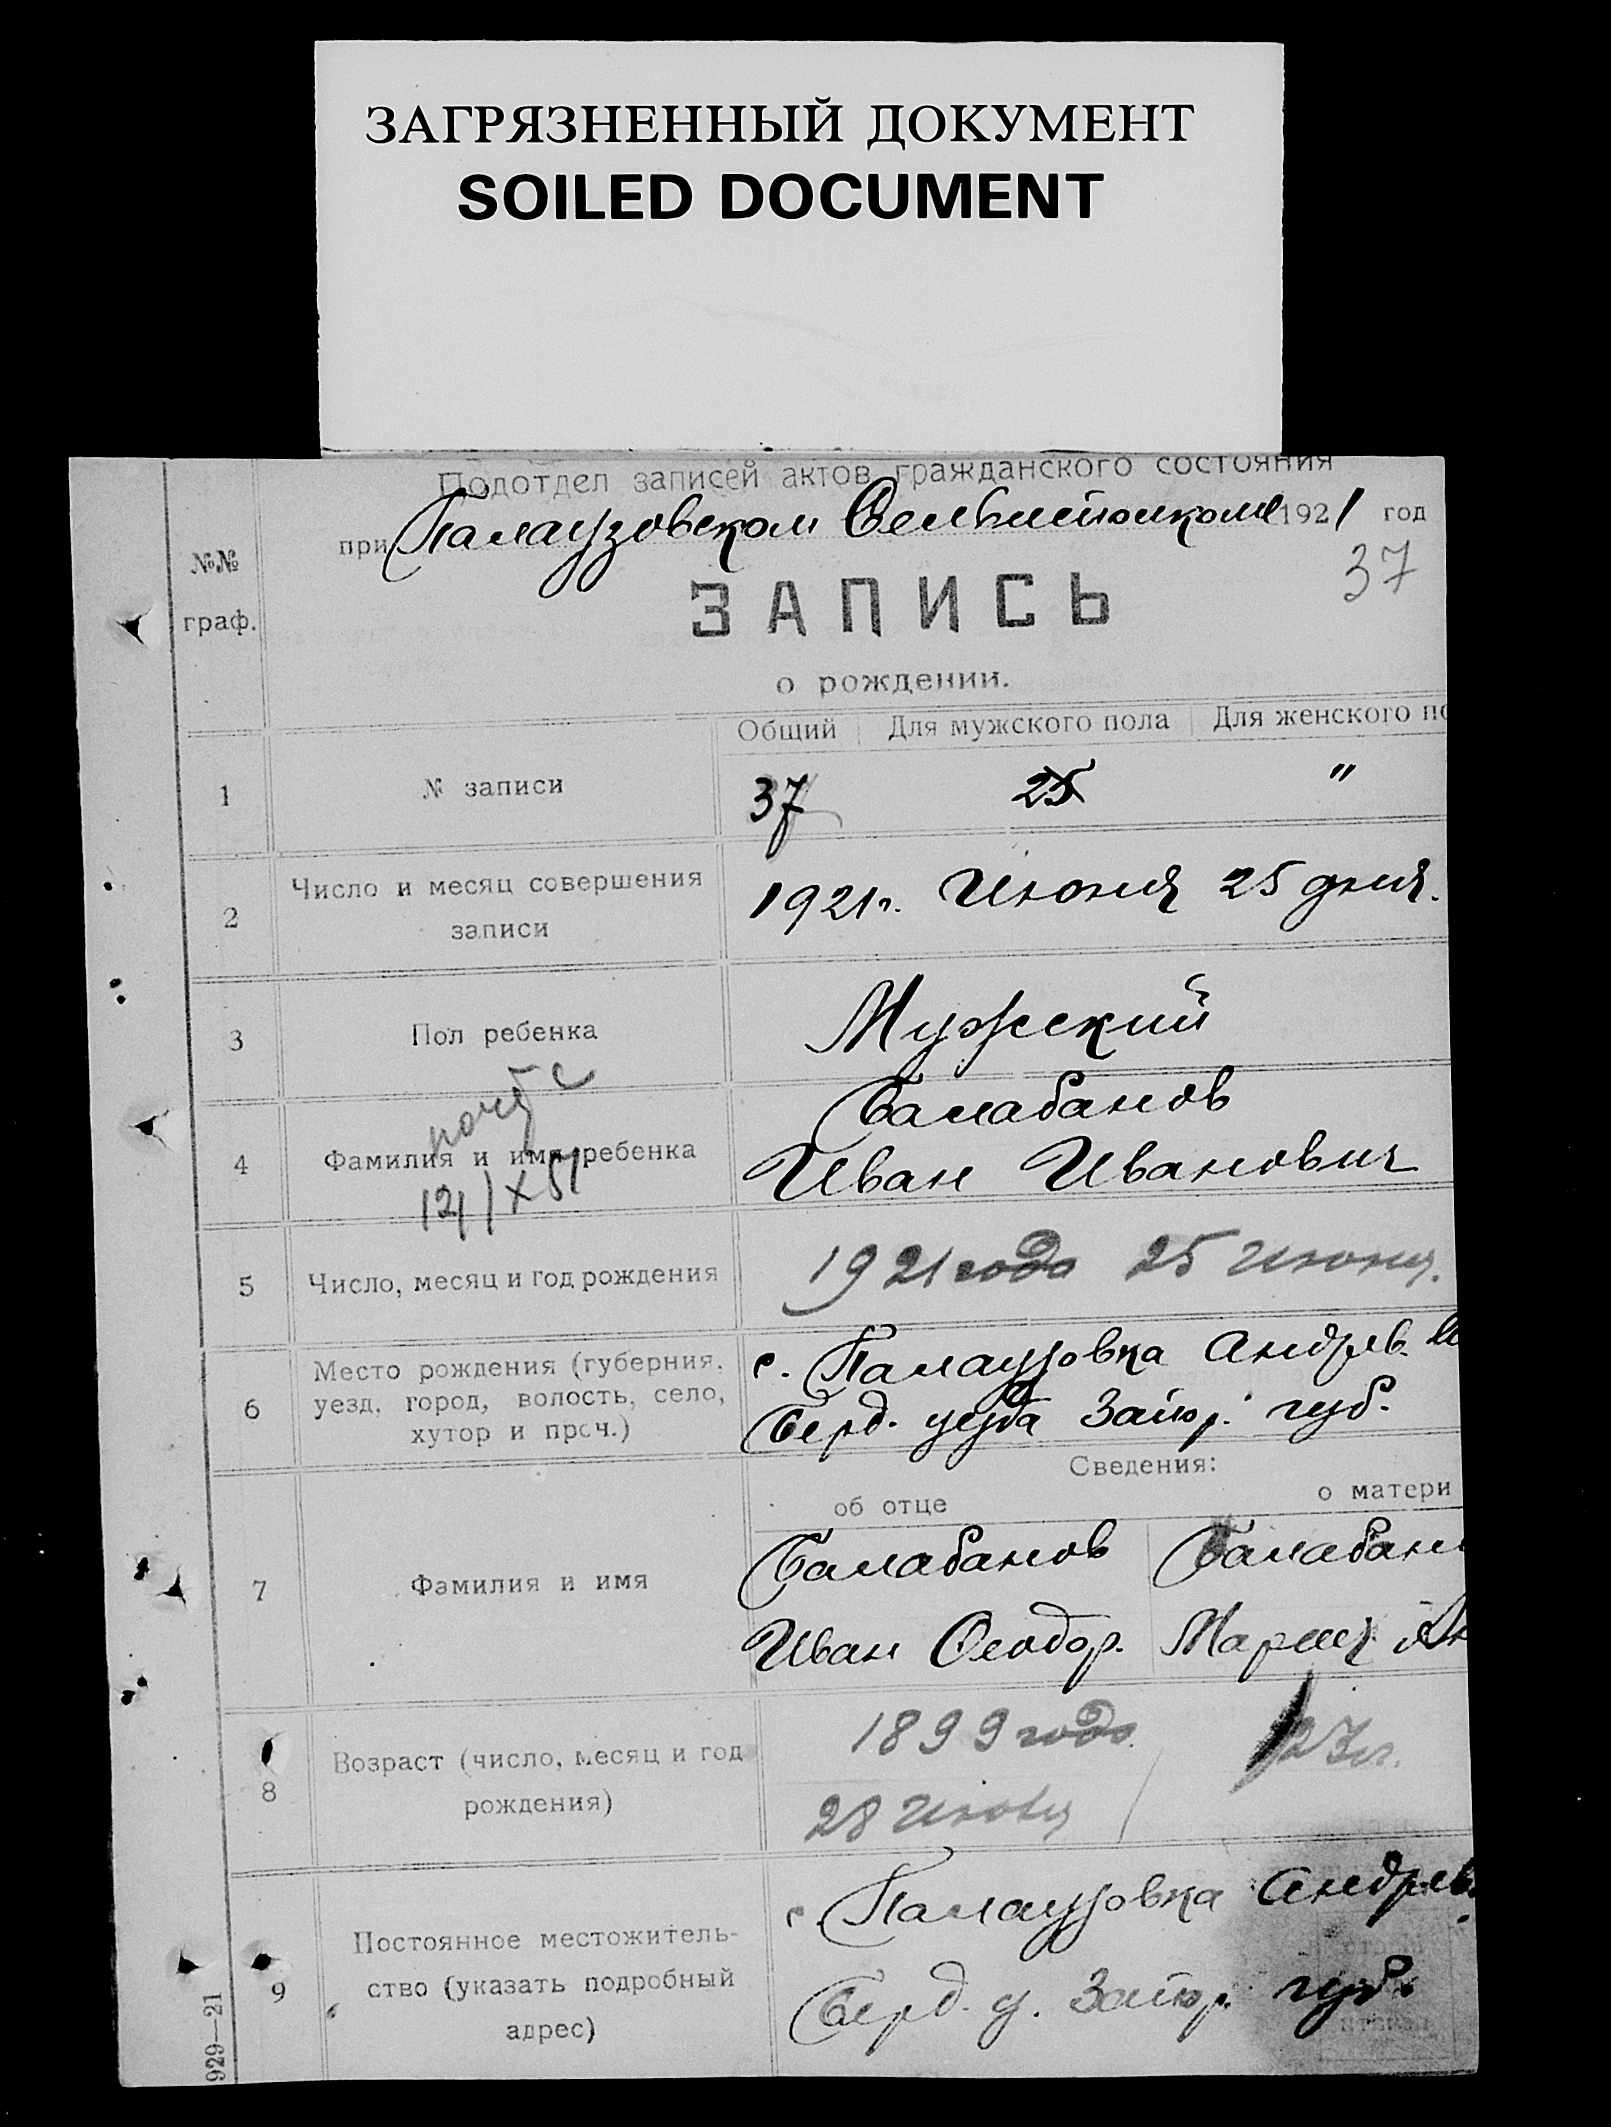 ЗАГРЯЗНЕННЫЙ ДОКУМЕНТ
SOILED DOCUMENT
Подотдел записей актов гражданского состояния
при Палаузовском Сельисполкоме 1921 год
№№
граф.
37
ЗАПИСЬ
о рождении.
Общий Для мужского пола Для женского по
1 № записи 37 25 "
2 Число и месяц совершения
записи
1921 г. Июня 25 дня.
3 Пол ребенка Мужский
4 Фамилия и имя ребенка
Балабанов
Иван Иванович
12/X 51
5 Число, месяц и год рождения 1921 года 25 Июня.
6 Место рождения (губерния,
уезд, город, волость, село,
хутор и проч.)
с. Палаузовка Андрев.
Берд. уезда Запор. губ.
Сведения:
об отце о матери
7 Фамилия и имя
Балабанов Балабан
Иван Феодор. Мария
8 Возраст (число, месяц и год
рождения)
1899 года 23 л.
28 Июня
9 Постоянное местожитель-
ство (указать подробный
адрес)
с. Палаузовка Андрев.
Берд. у. Запор. губ.
929—21